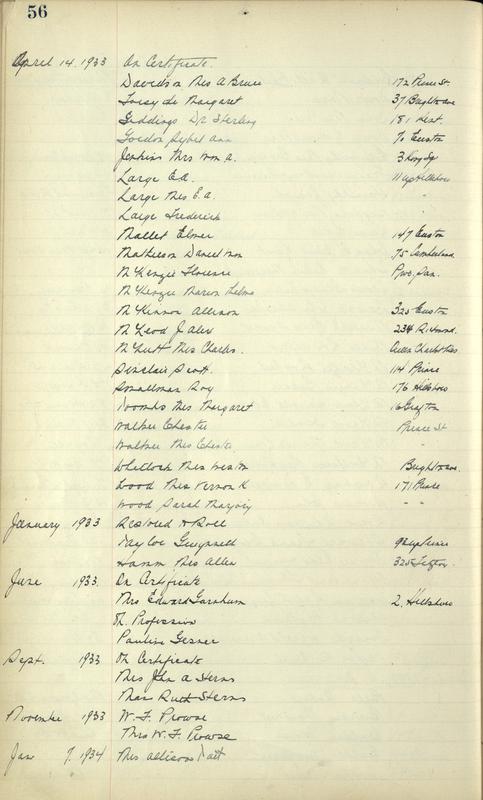 56
April 14. 1933 On Certificate.
Davidson Mrs A Bruce 172 Prince St.
Margaret 37
Giddings Dr Sterling 181 Kent.
Gordon Sybil Ann 70 Euston
Jenkins Mrs Wm A. 3
Large E.A. 11 up Hillsboro
Large Mrs E.A. "
Large Frederick "
Mallet Elmer 147 Euston
Matheson Daniel Wm 75 Cumberland
McKenzie Florence Pwc.
McKenzie Marion Thelma
McKinnon Allison 325 Euston
McLeod J Alex 234 Richmond.
McNutt Mrs Charles.
Sinclair Scott. 114 Prince
Smallman Roy 176 Hillsboro
Toombs Mrs Margaret 16 Grafton
Walker Chester Prince St
Walker Mrs Chester "
Whitlock Mrs Weston
Wood Mrs Vernon K 171 Prince
Wood Sarah Marjory " "
January 1933 Restored to Roll
Taylor Gwynneth 92 up Prince
Hamm Mrs Allen 325
June 1933. On Certificate
Mrs Edward Garnhum 2. Hillsboro
On Profession
Pauline Gesner
Sept. 1933 On Certificate
Mrs John A Sterns
Miss Ruth Sterns
November 1933 W. F. Prowse
Mrs W. F. Prowse
Jan 7. 1934 Mrs Allison